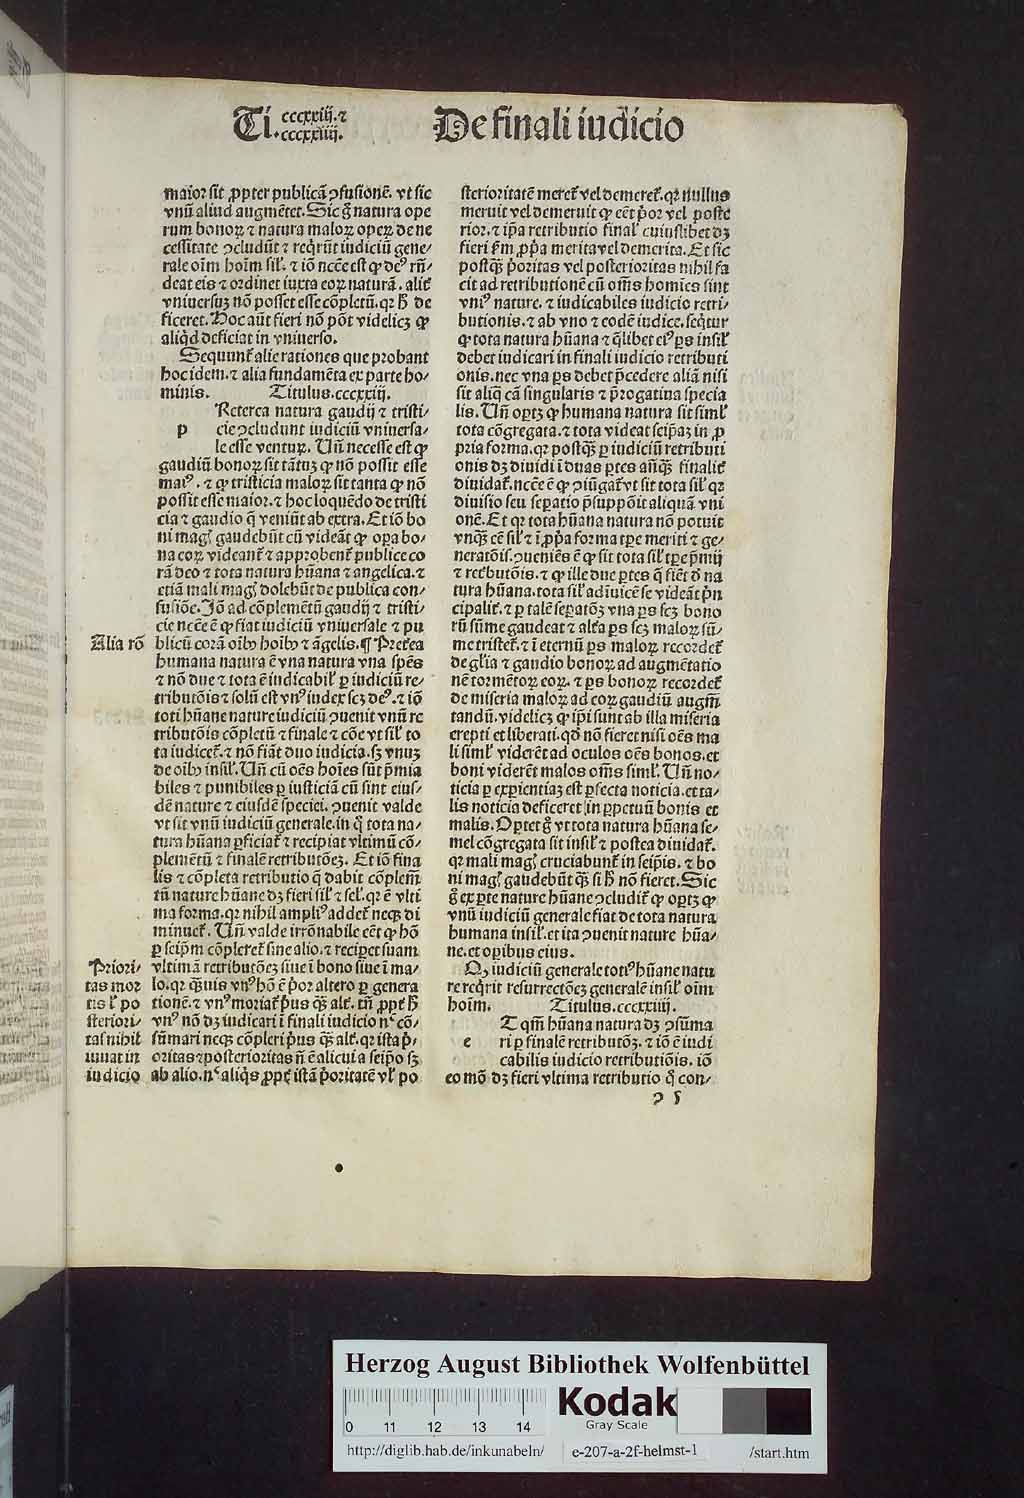 Ti. cccxxiij. ⁊ cccxxiiij. De finali iudicio
maior sit ꝓpter publicā ꝯfusionē. vt sic
vnū aliud augmētet. Sic gͦ natura ope
rum bonoꝝ ⁊ natura maloꝝ opeꝝ de ne
cessitate ꝯcludūt ⁊ reqͥrūt iudiciū gene⸗
rale oīm hoīm sil'. ⁊ iō nccē est ꝙ deꝰ rn̄⸗
deat eis ⁊ ordinet iuxta eoꝝ naturā. alit̓
vniuersuꝫ nō posset esse cōpletū. qꝛ hͦ de
ficeret. Hoc aūt fieri nō pōt videlicꝫ ꝙ
aliqͥd deficiat in vniuerso.
Sequunt̓ alie rationes que probant
hoc idem. ⁊ alia fundamēta ex parte ho⸗
minis. Titulus. cccxxiij.
Reterea natura gaudij ⁊ tristi⸗
p cie ꝯcludunt iudiciū vniuersa⸗
le esse ventuꝝ. Un̄ necesse est ꝙ
gaudiū bonoꝝ sit tātuꝫ ꝙ nō possit esse
maiꝰ. ⁊ ꝙ tristicia maloꝝ sit tanta ꝙ nō
possit esse maior. ⁊ hoc loquēdo de tristi
cia ⁊ gaudio q̄ veniūt ab extra. Et iō bo
ni magꝭ gaudebūt cū videāt ꝙ oꝑa bo⸗
na eoꝝ videant̓ ⁊ approbent̓ publice co
rā deo ⁊ tota natura hūana ⁊ angelica. ⁊
etiā mali magꝭ dolebūt de publica con⸗
fusiōe. Iō ad cōplementū gaudij ⁊ tristi⸗
cie nccē ē ꝙ fiat iudiciū vniuersale ⁊ pu
Alia rō
blicū corā oībꝰ hoībꝰ ⁊ āgelis. ¶ Pret̓ea
humana natura ē vna natura vna spēs
⁊ nō due ⁊ tota ē iudicabil' ꝑ iudiciū re⸗
tributōis ⁊ solū est vnꝰ iudex scꝫ deꝰ. ⁊ iō
toti hūane nature iudiciū ꝯuenit vnū re
tributōis cōpletū ⁊ finale ⁊ cōe vt sil' to
ta iudicet̓. ⁊ nō fiāt duo iudicia. sꝫ vnuꝫ
de oībꝰ insil'. Un̄ cū oēs hoīes sūt p̄mia
biles ⁊ punibiles ꝑ iusticiā cū sint eius⸗
dē nature ⁊ eiusdē speciei. ꝯuenit valde
vt sit vnū iudiciū generale. in qͦ tota na⸗
tura hūana ꝑficiat̓ ⁊ recipiat vltimū cō⸗
plementū ⁊ finalē retributōeꝫ. Et iō fina
lis ⁊ cōpleta retributio q̄ dabit cōplem̄
tū nature hūane dꝫ fieri sil' ⁊ sel'. qꝛ ē vlti
ma forma. qꝛ nihil ampliꝰ addet̓ neqꝫ di
minuet̓. Un̄ valde irrōnabile eēt ꝙ hō
ꝑ seip̄m cōpleret̓ sine alio. ⁊ reciperet suam
Priori⸗
tas mor
tis l' po
steriori⸗
tas nihil
iuuat in
iudicio
vltimā retributōeꝫ siue ī bono siue ī ma⸗
lo. qꝛ qͣuis vnꝰ hō ē p̓or altero ꝑ genera
tionē. ⁊ vnꝰ moriat̓ p̓us qͣꝫ alt̓. tn̄ ꝓpt̓ hͦ
vnꝰ nō dꝫ iudicari ī finali iudicio nͨ cō⸗
sūmari neqꝫ cōpleri p̓us qͣꝫ alt̓. qꝛ ista p̓⸗
oritas ⁊ posterioritas nō ē alicui a seipo sꝫ
ab alio. nͨ aliqͥs ꝓpt̓ istā p̓oritatē vl' po
sterioritatē meret̓ vel demeret̓. qꝛ nullus
meruit vel demeruit ꝙ eēt p̓or vel poste
rior. ⁊ ip̄a retributio final' cuiuslibet dꝫ
fieri ẜm ꝓp̓a merita vel demerita. Et sic
postqͣꝫ p̓oritas vel posterioritas nihil fa
cit ad retributionē cū om̄s homies sint
vniꝰ nature. ⁊ iudicabiles iudicio retri⸗
butionis. ⁊ ab vno ⁊ eodē iudice. seqͥtur
ꝙ tota natura hūana ⁊ qͣlibet eiꝰ ꝑs insil'
debet iudicari in finali iudicio retributi
onis. nec vna ꝑs debet p̄cedere aliā nisi
sit aliqͣ cā singularis ⁊ p̄rogatiua specia
lis. Un̄ oꝑtꝫ ꝙ humana natura sit siml'
tota cōgregata. ⁊ tota videat seip̄aꝫ in ꝓ
pria forma. qꝛ postqͣꝫ ꝑ iudiciū retributi
onis dꝫ diuidi ī duas ꝑtes an̄qͣꝫ finalit̓
diuidat̓. nccē ē ꝙ ꝯiūgat̓ vt sit tota sil' qꝛ
diuisio seu seꝑatio p̄suppōit aliquā vni
onē. Et qꝛ tota hūana natura nō potuit
vnqͣꝫ eē sil' ⁊ ī ꝓp̓a forma tꝑe meriti ⁊ ge⸗
neratōis. ꝯueniēs ē ꝙ sit tota sil' tꝑe p̄mij
⁊ ret̓butōis. ⁊ ꝙ ille due ꝑtes q̄ fiēt ď na
tura hūana. tota sil' adiuicē se videāt p̓n
cipalit̓. ⁊ ꝑ talē seꝑatōꝫ vna ꝑs scꝫ bono
rū sūme gaudeat ⁊ alt̓a ꝑs scꝫ maloꝝ sū⸗
me tristet̓. ⁊ ī eternū ꝑs maloꝝ recordet̓
de gl'ia ⁊ gaudio bonoꝝ ad augmētatio
nē tormētoꝝ eoꝝ. ⁊ ꝑs bonoꝝ recordet̓
de miseria maloꝝ ad eoꝝ gaudiū augm̄
tandū. videlicꝫ ꝙ ip̄i sunt ab illa miseria
erepti et liberati. qd̓ nō fieret nisi oēs ma
li siml' viderēt ad oculos oēs bonos. et
boni viderēt malos om̄s siml'. Un̄ no⸗
ticia ꝑ exꝑientiaꝫ est ꝑfecta noticia. et ta⸗
lis noticia deficeret in ꝑpetuū bonis et
malis. Oꝑtet gͦ vt tota natura hūana se⸗
mel cōgregata sit insil' ⁊ postea diuidat̓.
qꝛ mali magꝭ cruciabunt̓ in seip̄is. ⁊ bo
ni magꝭ gaudebūt qͣꝫ si hͦ nō fieret. Sic
gͦ ex ꝑte nature hūane ꝯcludit̓ ꝙ oꝑtꝫ ꝙ
vnū iudiciū generale fiat de tota natura
humana insil'. et ita ꝯuenit nature hūa⸗
ne. et oꝑibus eius.
Qꝫ iudiciū generale totiꝰ hūane natu
re reqͥrit resurrectōeꝫ generalē insil' oīm
hoīm. Titulus. cccxxiiij.
T qm̄ hūana natura dꝫ ꝯsūma
e ri ꝑ finalē retributōꝫ. ⁊ iō ē iudi
cabilis iudicio retributiōis. iō
eo mō dꝫ fieri vltima retributio qͦ con⸗
ꝯ 5
Herzog August Bibliothek Wolfenbüttel
0 11 12 13 14
Kodak
Gray Scale
http://diglib.hab.de/inkunabeln/ e-207-a-2f-helmst-1 /start.htm